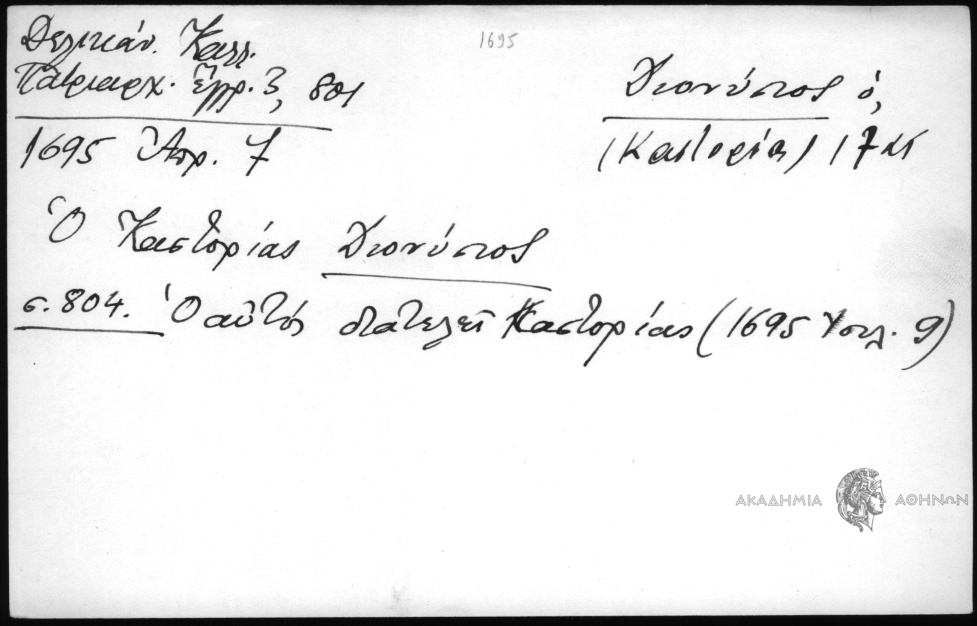 Δελικάν. Καλλ.
1695
Πατριαρχ. Ἔγγρ. 3, 801
Διονύσιος ὁ,
1695 Ἀπρ. 7
(Καστορίας) 17
Ὁ Καστορίας Διονύσιος
σ. 804. Ὁ αὐτὸς διατελεῖ Καστορίας (1695 Ἰουλ. 9)
ΑΚΑΔΗΜΙΑ ΑΘΗΝΩΝ